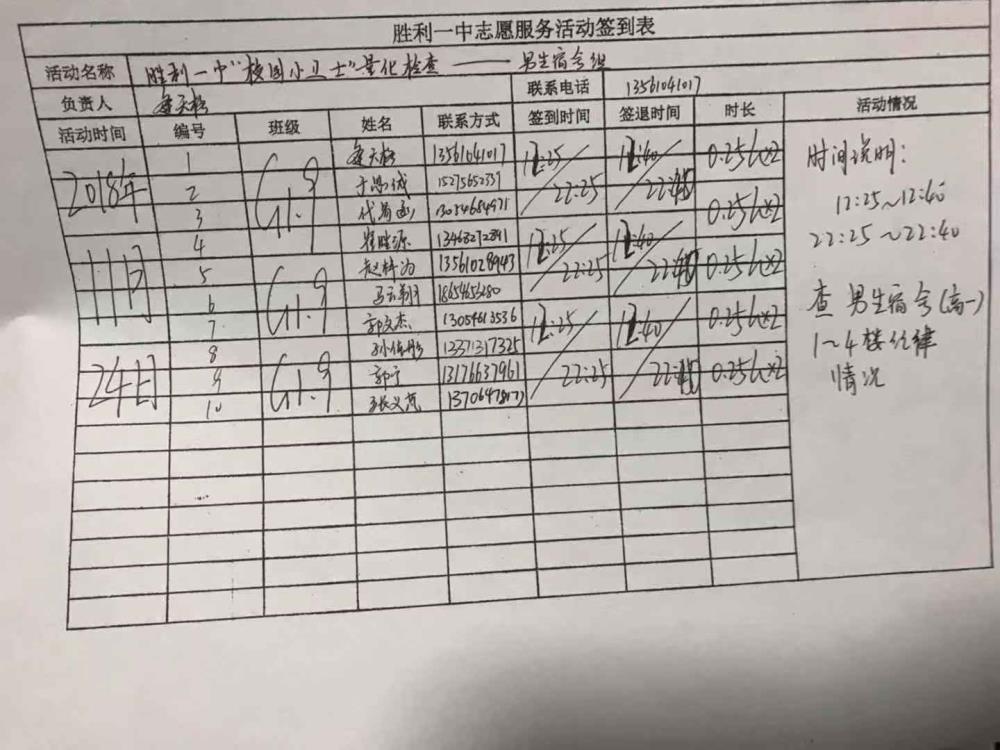 胜利一中志愿服务活动签到表
活动名称 胜利一中"校园小卫士"量化检查——男生宿舍组
负责人 联系电话 13561041017
活动时间 编号 班级 姓名 联系方式 签到时间 签退时间 时长 活动情况
2018年 11月 24日
G1.9
G1.9
G1.9
1 13561041017 12:25/22:25 12:40/22:40 0.25h×2
2 于思诚 15275652337
3 13054684971 0.25h×2
4 13468272891 12:25/22:25 12:40/22:40
5 13561028943 0.25h×2
6 18654653280
7 郭文杰 13054613536 12:25/22:25 12:40/22:40 0.25h×2
8 13371317325
9 郭宁 13176637961 0.25h×2
10 张义范
时间说明:
12:25~12:40
22:25~22:40
查男生宿舍(高一)
1~4楼纪律
情况